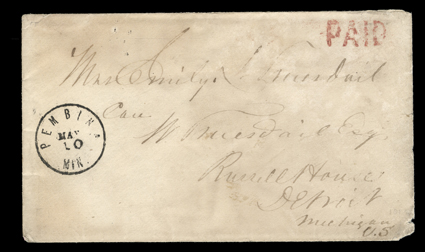 PAID
Mrs Emily J Truesdail
Care
W Truesdail Esq
PEMBINA
MAY
10
MIN.
Russell House
Detroit
Michigan
U.S